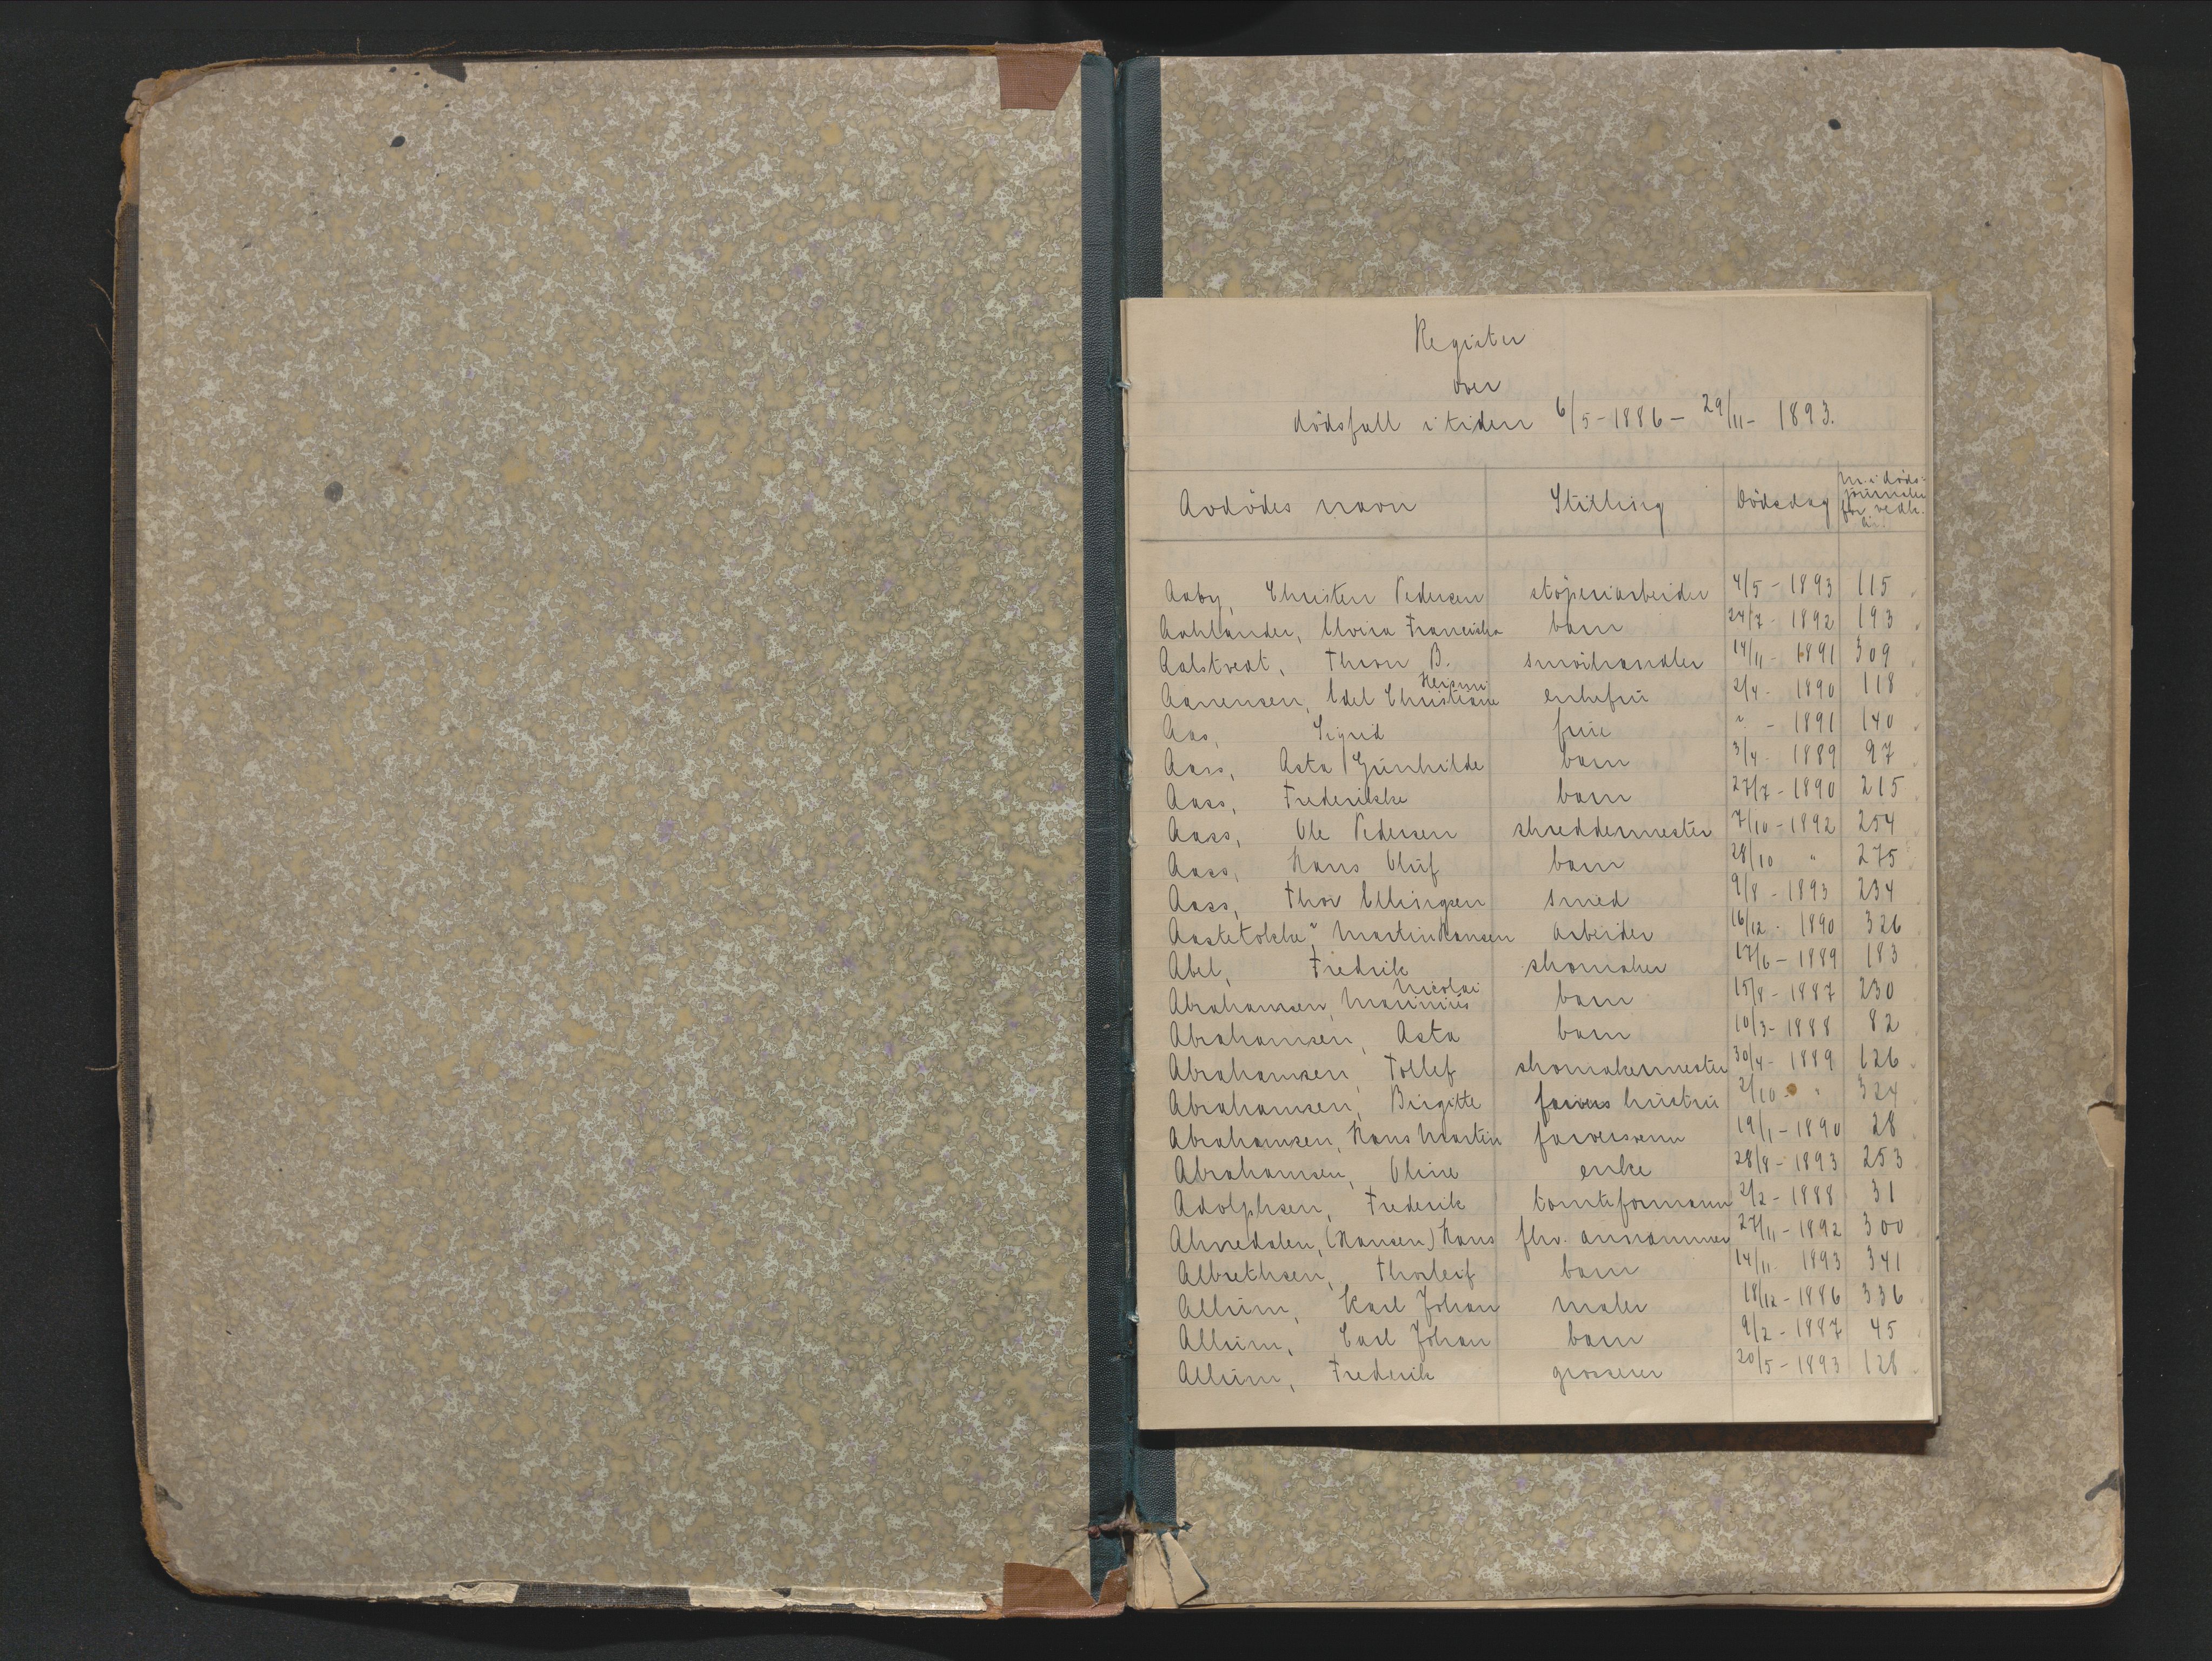 Register
over
dödsfall i tiden 6/5-1886 - 29/11- 1893.
Avdödes navn Stilling Dödsdag Nr. i döds-
journalen
for vedk.
år.
Aaby, Christen Pedersen stöperiarbeider 4/5 - 1893 115
Aahlander, Elvira Franciska barn 24/7 - 1892 193
Aalstvedt, Thron B. småhandler 14/11 - 1891 309
Aanensen, Edel Christiane enkefrü 2/4 - 1890 118
Aas, Sigrid früe " - 1891 140
Aass, Asta Günhilde barn 3/4 - 1889 97
Aass, Frederikke barn 27/7 - 1890 215
Aass, Ole Pedersen skreddermester 7/10 - 1892 254
Aass, Hans Olüf barn 28/10 " 275
Aass, Thor Ellingsen smed 9/8 - 1893 234
Martin Hansen arbeider 16/12 - 1890 326
Abel, Fredrik skomaker 17/6 - 1889 183
Nicolai
Abrahamsen, Mariniüs barn 15/8 - 1887 230
Abrahamsen, Asta barn 10/3 - 1888 82
Abrahamsen, Tollef skomakermester 30/4 - 1889 126
Abrahamsen, Birgitte farvers hüstrü 2/10 - " 324
Abrahamsen, Hans Martin farversvenn 19/1 - 1890 28
Abrahamsen, Oline enke 28/8 - 1893 253
Adolphsen, Frederik tomteformann 2/2 - 1888 31
Ahredalen, (Hansen) Hans fhv. annammer 27/11 - 1892 300
Albrethsen, Thorleif barn 14/11 1893 341
Allüm, Karl Johan maler 18/12 - 1886 336
Allüm, Carl Johan barn 9/2 - 1887 45
Allüm, Frederik grosserer 20/5 - 1893 128